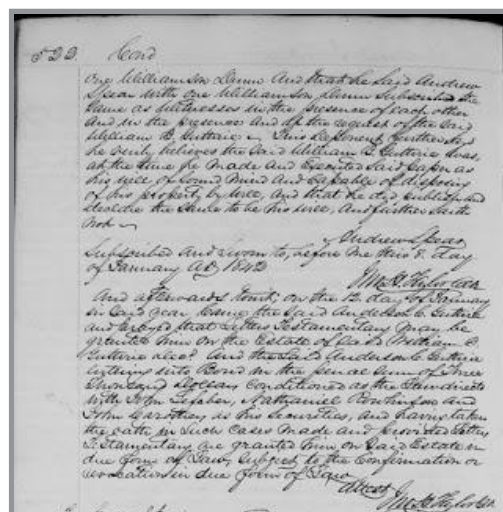 522 Cond
One Williamson Dunn And that he Said Andrew
Spear with one Williamson Dunn Subscribed the
Same as Witnesses in the presence of each other
And in the presence And by the request of the Said
William C. Guthrie. This Deponent further Says
he verily believes the Said William C. Guthrie was,
at the time he made and Executed Said paper as
his will of Sound Mind and Capable of disposing
of his property by Will, And that he did publish and
declare the Same to be his Will, And further Saith
not
Andrew Spear
Subscribed and Sworn to, before me this 8. day
of January AD 1842
Clk
And afterwards towit, on the 12 day of January
in Said year Came the Said Anderson C. Guthrie
and prayed that Letters Testamentary may be
granted him on the Estate of Said William C.
Guthrie decd. And the Said Anderson C. Guthrie
entering into Bond in the penal Sum of three
thousand Dollars Conditioned as the Law directs
with John Nathaniel and
John Carothers as his Securities, and having taken
the oath in Such Cases Made and provided Letters
Testamentary are granted him on Said Estate in
due form of Law, Subject to the Confirmation or
revocation in due form of Law
Attest